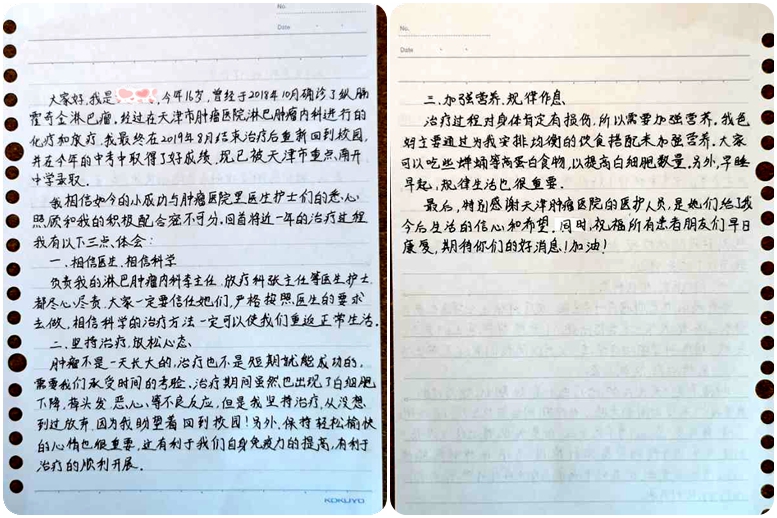 No.
Date
大家好,我是,今年16岁,曾经于2018年10月确诊了纵膈
霍奇金淋巴瘤,经过在天津市肿瘤医院淋巴肿瘤内科进行的
化疗和放疗,我最终在2019年8月结束治疗后重新回到校园,
并在今年的中考中取得了好成绩,现已被天津市重点南开
中学录取。
我相信如今的小成功与肿瘤医院里医生护士们的悉心
照顾和我的积极配合密不可分。回首将近一年的治疗过程
我有以下三点体会:
一、相信医生,相信科学
负责我的淋巴肿瘤内科李主任、放疗科张主任等医生护士
都尽心尽责,大家一定要信任她们,严格按照医生的要求
去做,相信科学的治疗方法一定可以使我们重返正常生活。
二、坚持治疗,放松心态、
肿瘤不是一天长大的,治疗也不是短期就能成功的,
需要我们承受时间的考验。治疗期间虽然也出现了白细胞
下降,掉头发,恶心等不良反应,但是我坚持治疗,从没想
到过放弃,因为我盼望着回到校园!另外,保持轻松愉快
的心情也很重要,这有利于我们自身免疫力的提高,有利于
治疗的顺利开展。
KOKUYO
No.
Date
三、加强营养,规律作息、
治疗过程对身体肯定有损伤,所以需要加强营养。我爸
妈主要通过为我安排均衡的饮食搭配来加强营养。大家
可以吃些等高蛋白食物,以提高白细胞数量。另外,早睡
早起,规律生活也很重要。
最后,特别感谢天津肿瘤医院的医护人员,是她们给了我
今后生活的信心和希望。同时,祝福所有患者朋友们早日
康复,期待你们的好消息!加油!